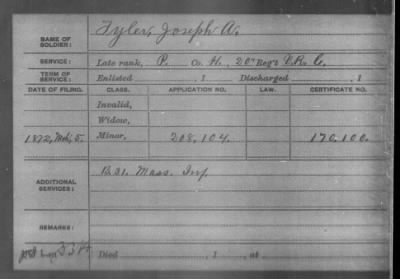 NAME OF SOLDIER: Tyler, Joseph A.
SERVICE: Late rank, P. Co. H., 20" Reg't V. R. C.
TERM OF SERVICE: Enlisted , 1 Discharged , 1
DATE OF FILING. CLASS. APPLICATION NO. LAW. CERTIFICATE NO.
Invalid,
Widow,
1872, Mch, 5. Minor, 208,104. 170,100.
ADDITIONAL SERVICES: B. 31. Mass. Inf
REMARKS:
Died , 1 , at